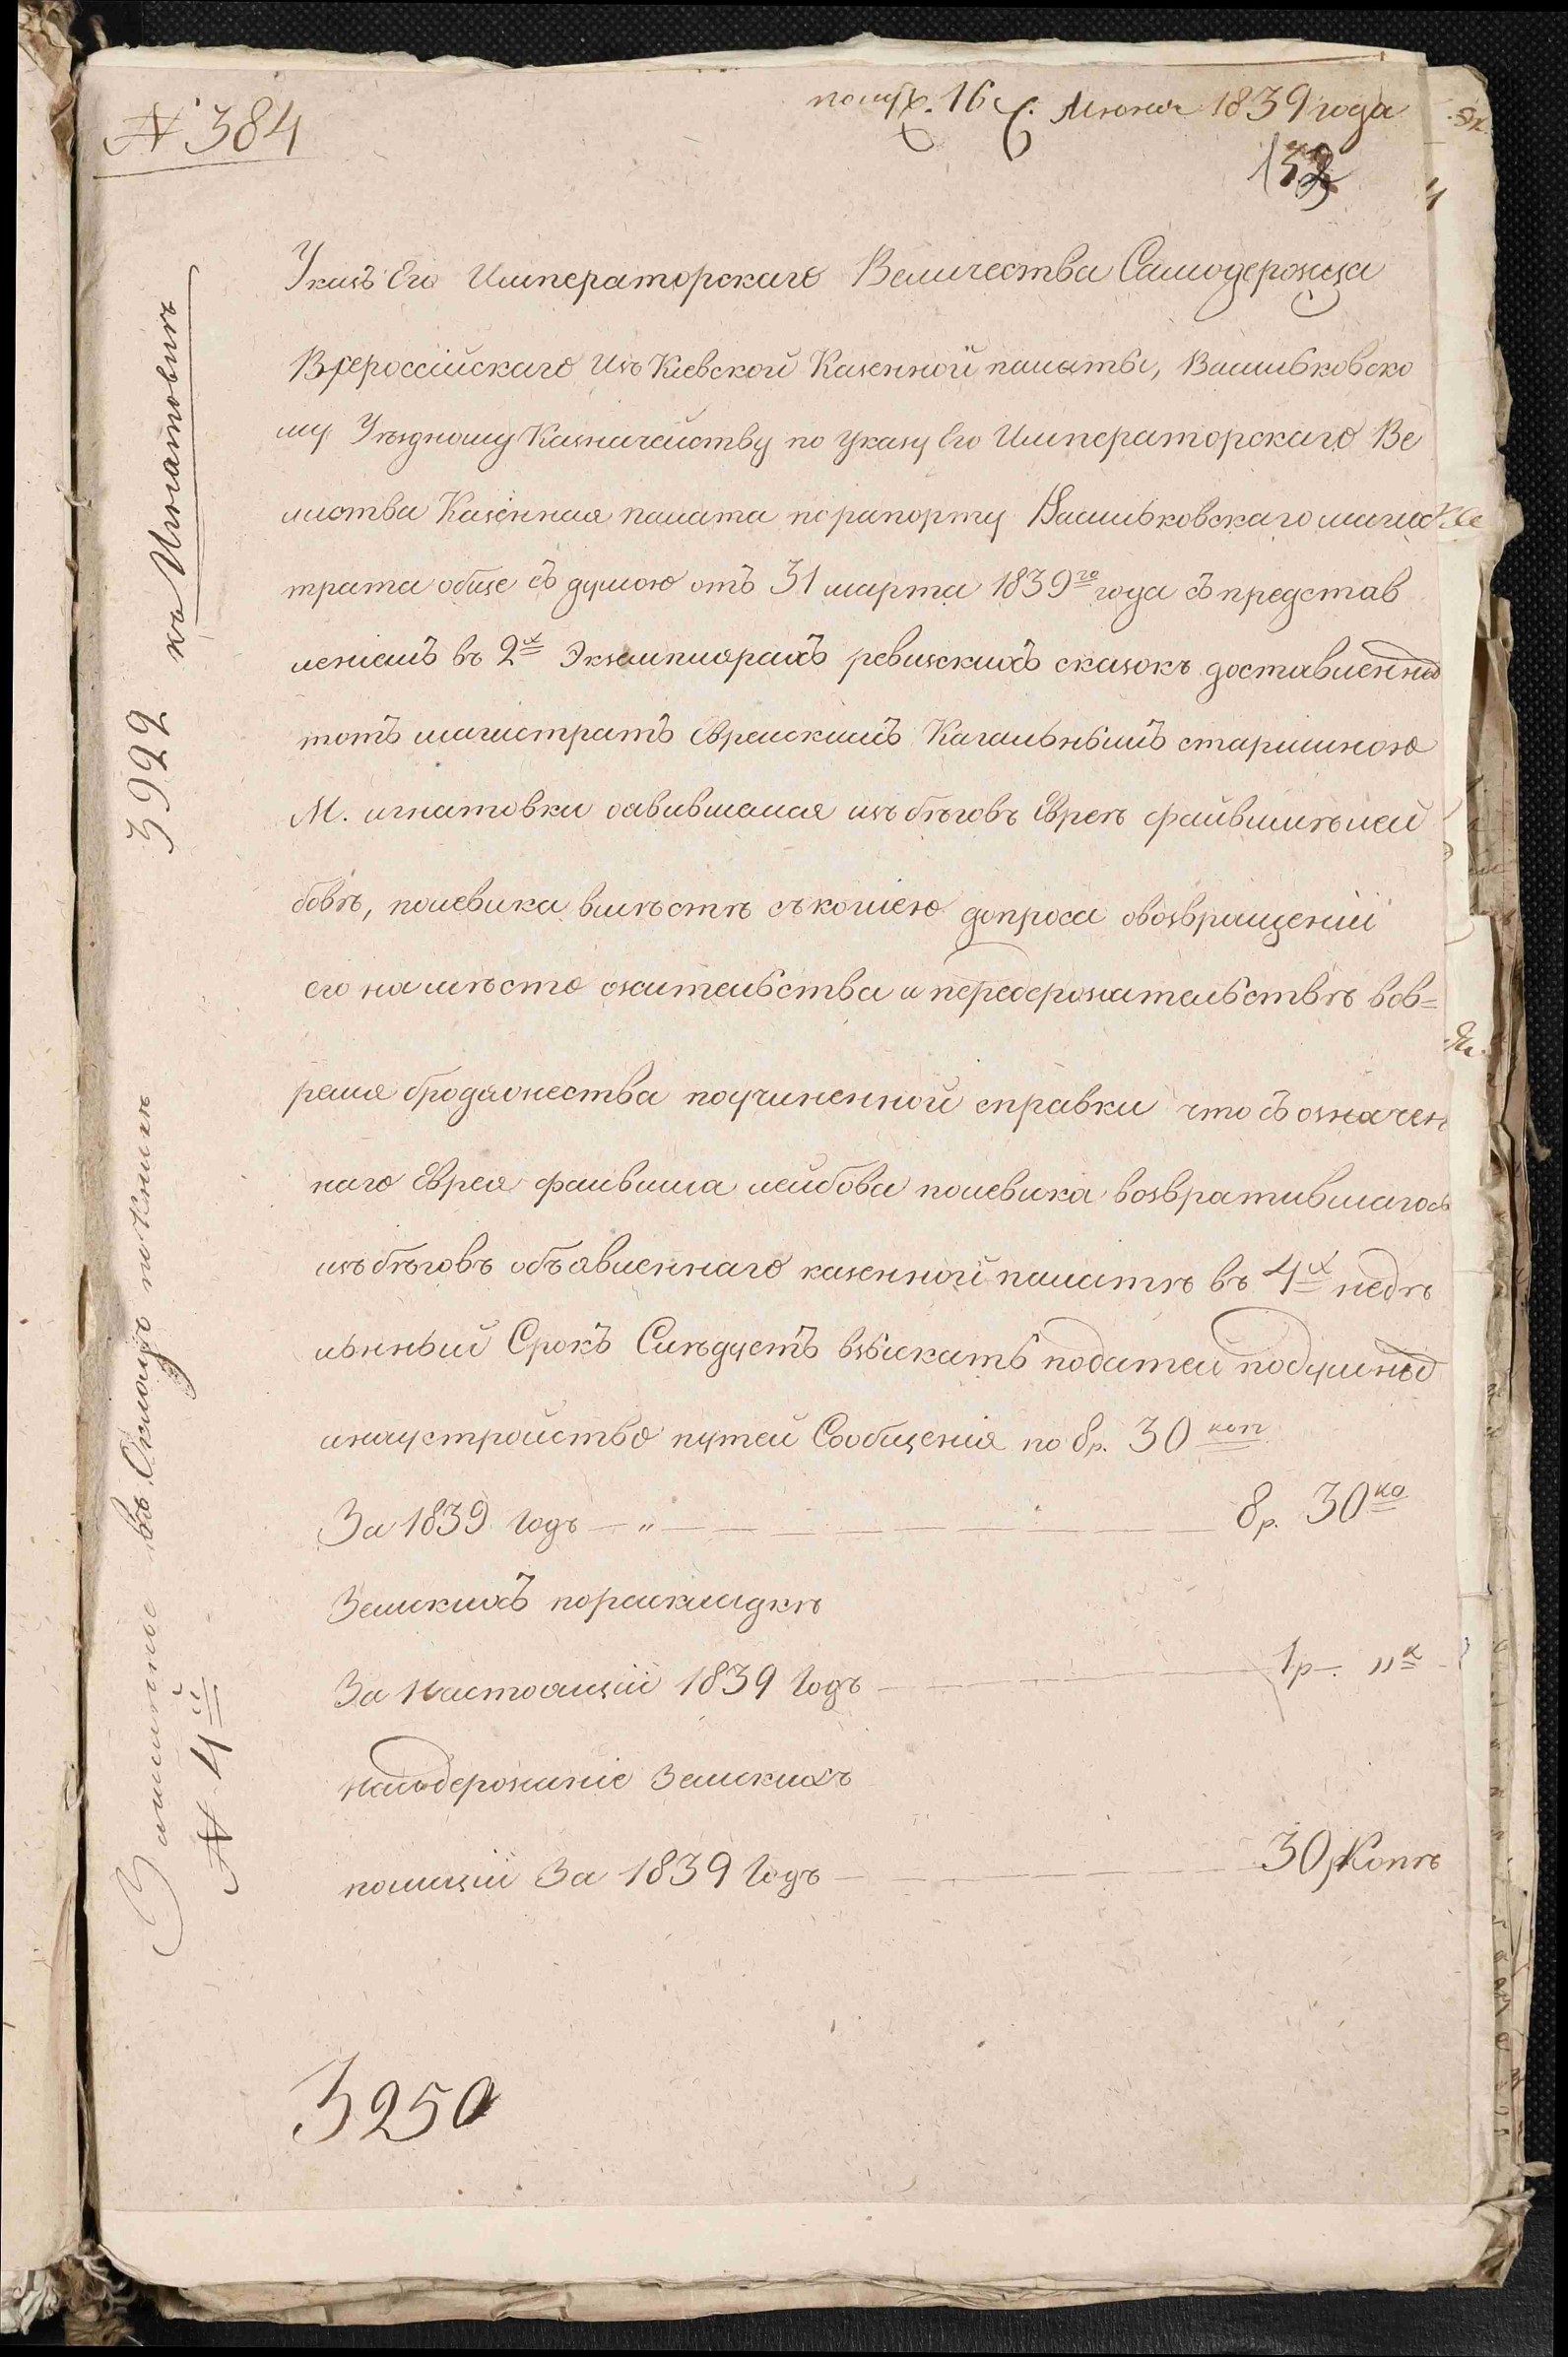 № 384
получ. 16 ч. Июня 1839 года
152
Указъ Его Императорскаго Величества Самодержца
Всероссійскаго Изъ Кіевской Казенной палаты, Васильковско
му Уѣздному Казначейству по указу Его Императорскаго Ве
личства Казенная палата по рапорту Васильковскаго магис
трата обще съ думою отъ 31 марта 1839го года съ представ
леніемъ въ 2х Экземплярахъ ревизскихъ сказокъ доставленныхъ
тотъ магистратъ Еврейскимъ Кагальнымъ старшиною
М. игнатовки оявившемся изъ бѣговъ Евреѣ файвишѣ лей
бовѣ, полевика вмѣстѣ съ копіею допроса овозвращеніи
его на мѣсто жительства и передержательствѣ вов=
ремя бродяжества поучиненной справки что съ означен
наго Еврея файвиша лейбова полевика возвратившагось
изъ бѣговъ объявленнаго казенной палатѣ въ 4х недѣ
льный Срокъ Слѣдуетъ взыскать податей подушныхъ
инаустройство путей Сообщенія по 8р. 30 коп
За 1839 Годъ — „ — 8р. 30 ко
Земскихъ пораскладкѣ
За Настоящій 1839 Годъ — 1р. „ к
насодержаніе Земскихъ
полицій За 1839 Годъ — 30 Копѣ
3250
3922 ка Игнатовичъ
Записанъ въ Окладъ по Книгѣ
№ 4й